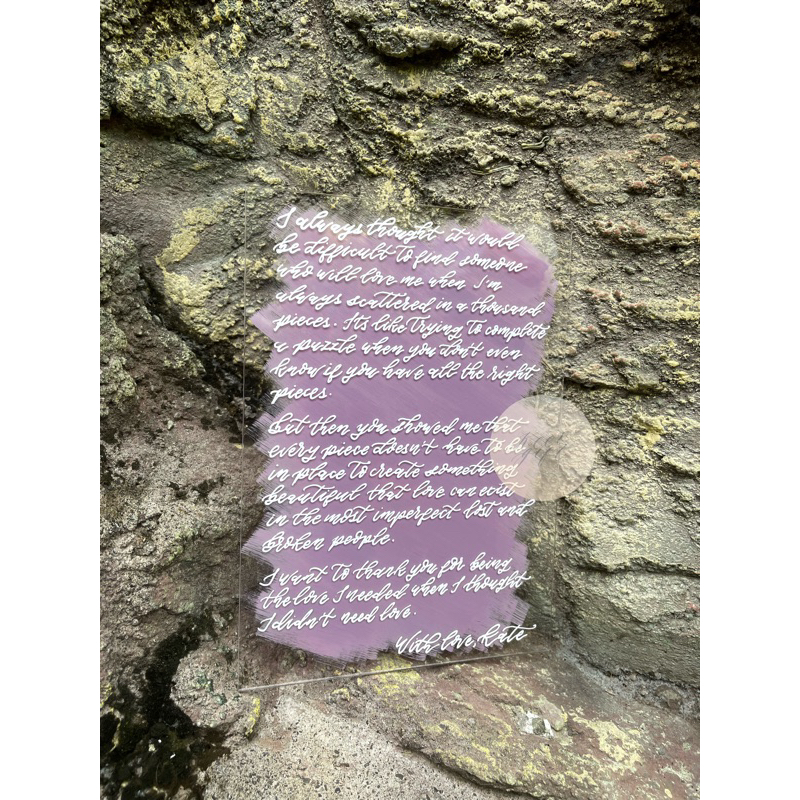 I always thought it would
be difficult to find someone
who will love me when I'm
always scattered in a thousand
pieces. It's like trying to complete
a puzzle when you don't even
know if you have all the right
pieces.
But then you showed me that
every piece doesn't have to be
in place to create something
beautiful that love can exist
in the most imperfect lost and
broken people.
I want to thank you for being
the love I needed when I thought
I didn't need love.
With love, Kate